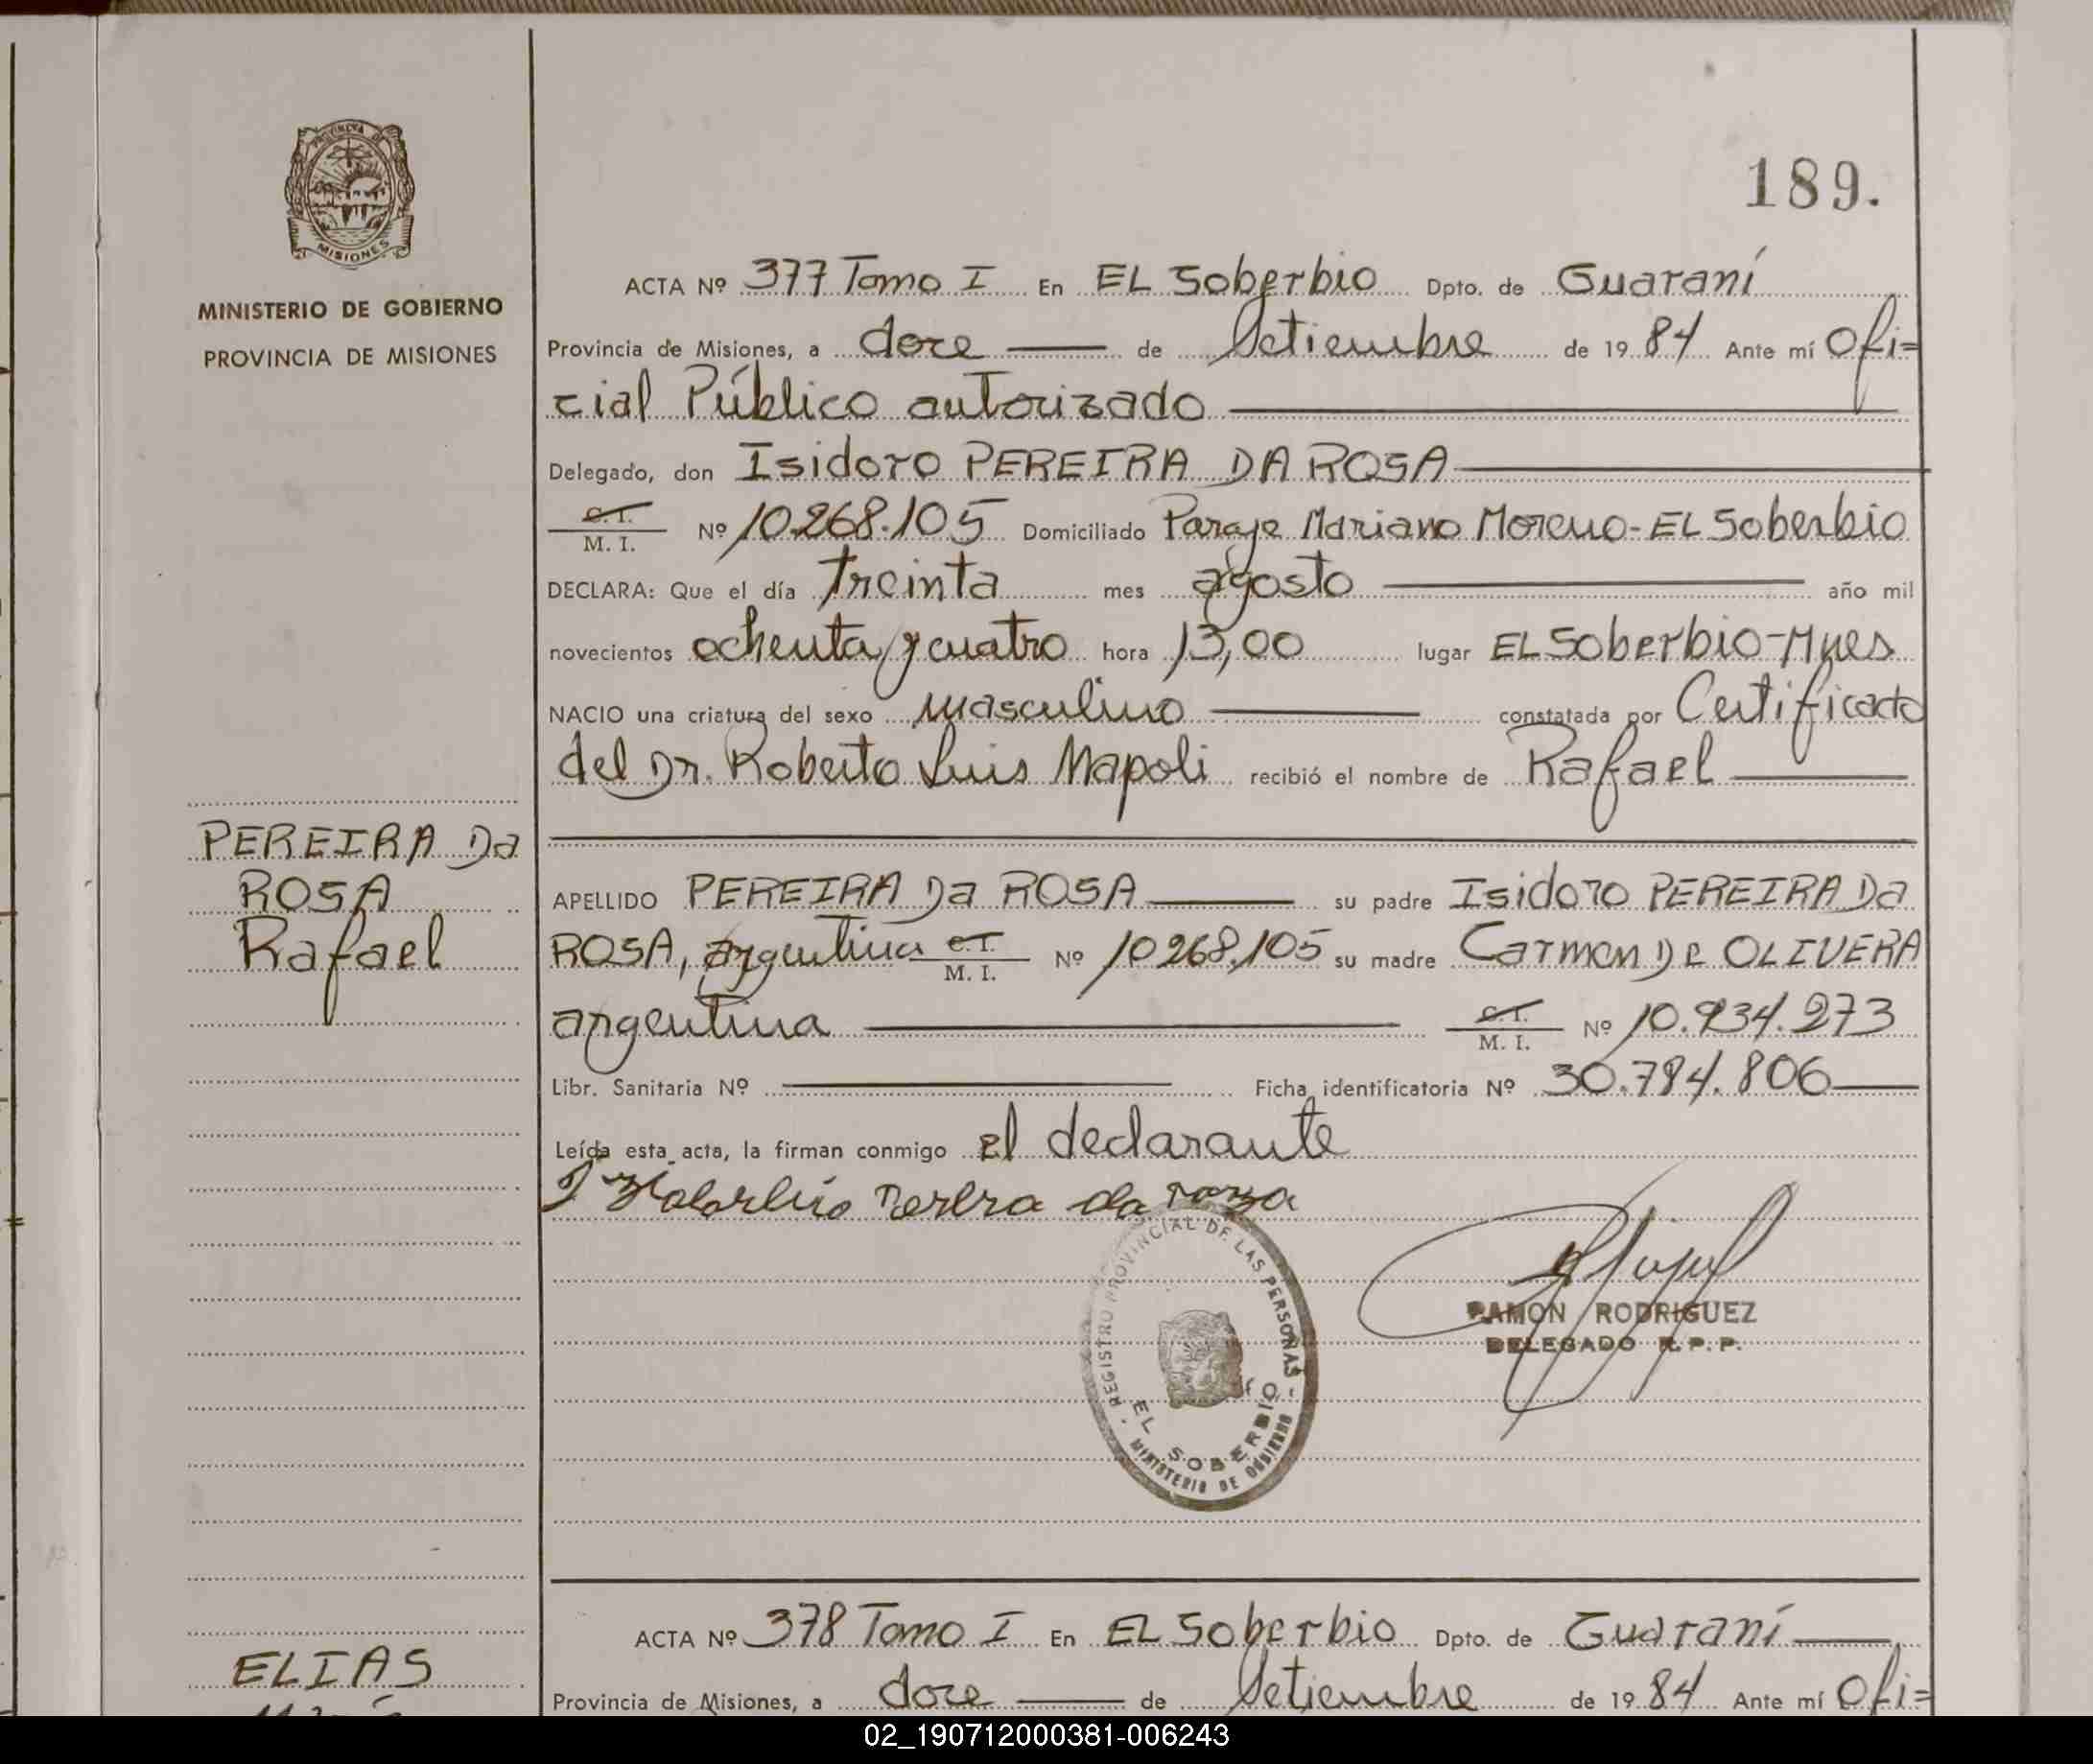 PROVINCIA DE
MISIONES
MINISTERIO DE GOBIERNO
PROVINCIA DE MISIONES
189.
ACTA Nº 377 Tomo I En EL Soberbio Dpto. de Guaraní
Provincia de Misiones, a doce de Setiembre de 1984 Ante mí Ofi=
cial Público autorizado
Delegado, don Isidoro PEREIRA DA ROSA
C. I.
M. I. Nº 10.268.105 Domiciliado Paraje Mariano Moreno-EL Soberbio
DECLARA: Que el día treinta mes agosto año mil
novecientos ochenta y cuatro hora 13,00 lugar EL Soberbio-Mnes
NACIO una criatura del sexo masculino constatada por Certificado
del Dr. Roberto Luis Napoli recibió el nombre de Rafael
PEREIRA Da
ROSA
Rafael
APELLIDO PEREIRA Da ROSA su padre Isidoro PEREIRA Da
ROSA, argentino C. I.
M. I. Nº 10268.105 su madre Carmen De OLIVERA
argentina C. I.
M. I. Nº 10.934.273
Libr. Sanitaria Nº Ficha identificatoria Nº 30.784.806
Leída esta acta, la firman conmigo el declarante
da
REGISTRO PROVINCIAL DE LAS PERSONAS
EL SOBERBIO
MINISTERIO DE GOBIERNO
RAMON RODRIGUEZ
DELEGADO R.P.P.
ACTA Nº 378 Tomo I En EL Soberbio Dpto. de Guaraní
ELIAS
Provincia de Misiones, a doce de Setiembre de 1984 Ante mí Ofi=
02_190712000381-006243